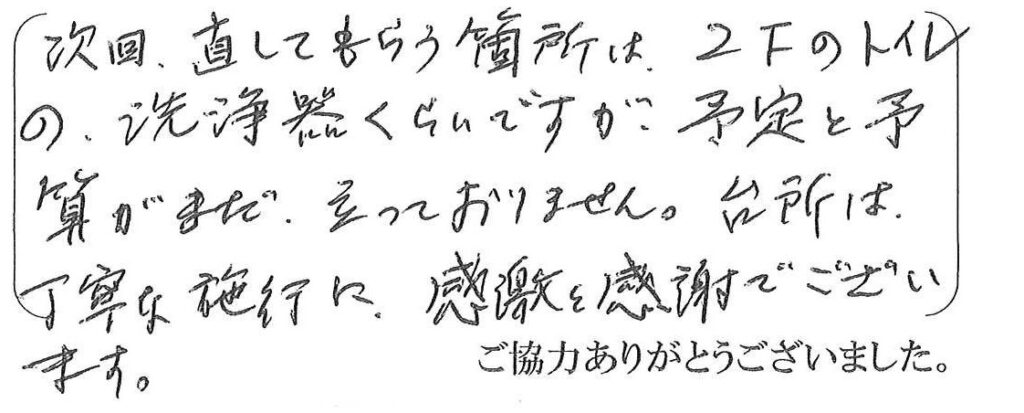 次回、直してもらう箇所は、2Fのトイレ
の、洗浄器くらいですが、予定と予
算がまだ、立っておりません。台所は、
丁寧な施行に、感激と感謝でござい
ます。
ご協力ありがとうございました。